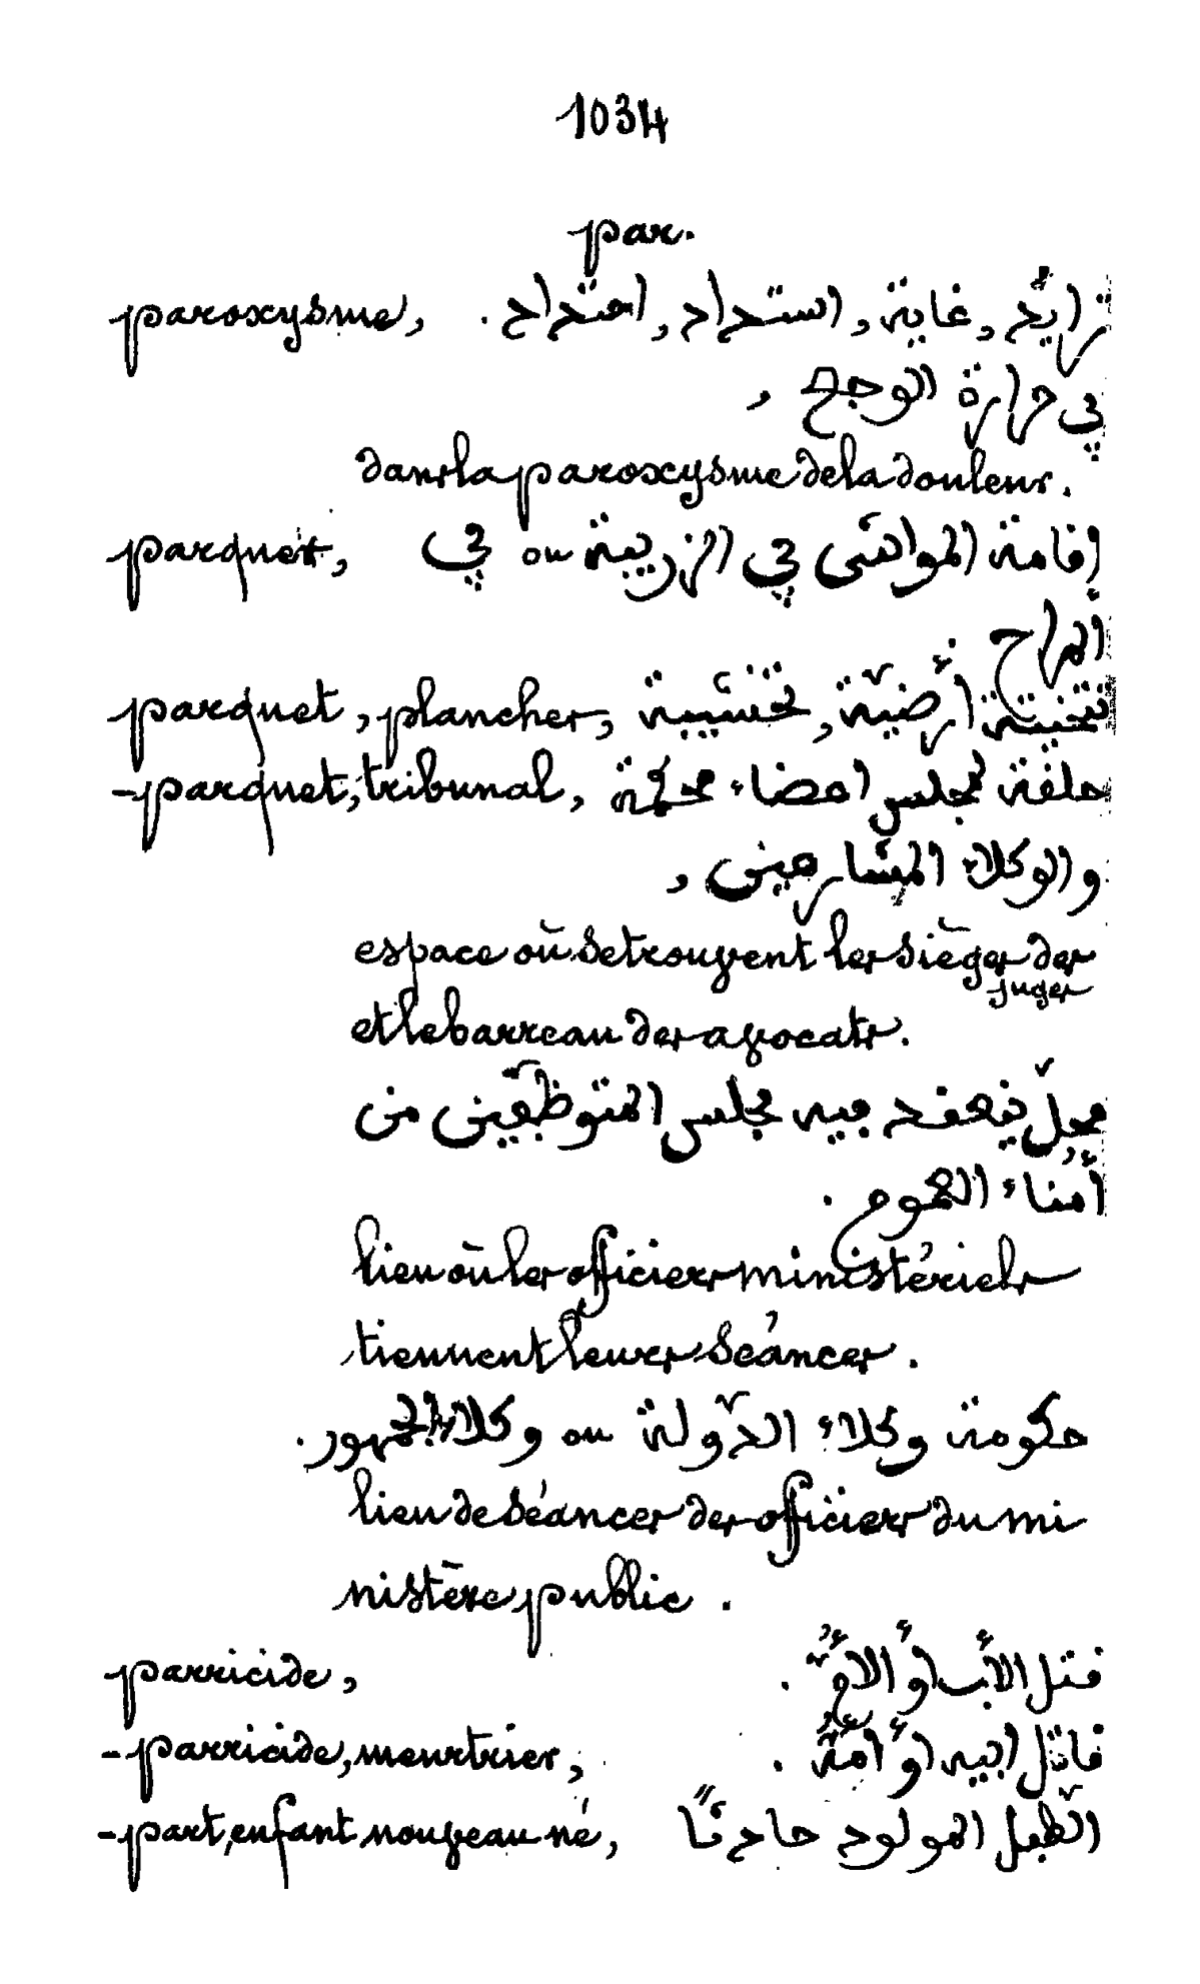 1034
par.
paroxysme, تزايُد, غاية, استداد, احتداد.
في حرارة الوجع,
dans la paroxysme de la douleur.
parquet, إقامة المواشى في الزريبة ou في
المراح.
parquet, plancher, تختيتة أرضيّة, تخشيبة
- parquet, tribunal, حلقة لمجلس اعضاء محكمة
والوكلاء المشارعين,
espace où se trouvent les sièges des
juges
et le barreau des avocats.
محلّ ينعقد فيه مجلس المتوظّفين من
أمناء العموم.
lieu où les officiers ministériels
tiennent leurs séances.
حكومة وكلاء الدّولة ou وكلاء الجمهور.
lieu de séances des officiers du mi
nistère public.
parricide, قتل الأب أو الأمّ.
- parricide, meurtrier, قاتل ابيه أو أمّه.
- part, enfant nouveau né, الطّفل المولود حادثًا